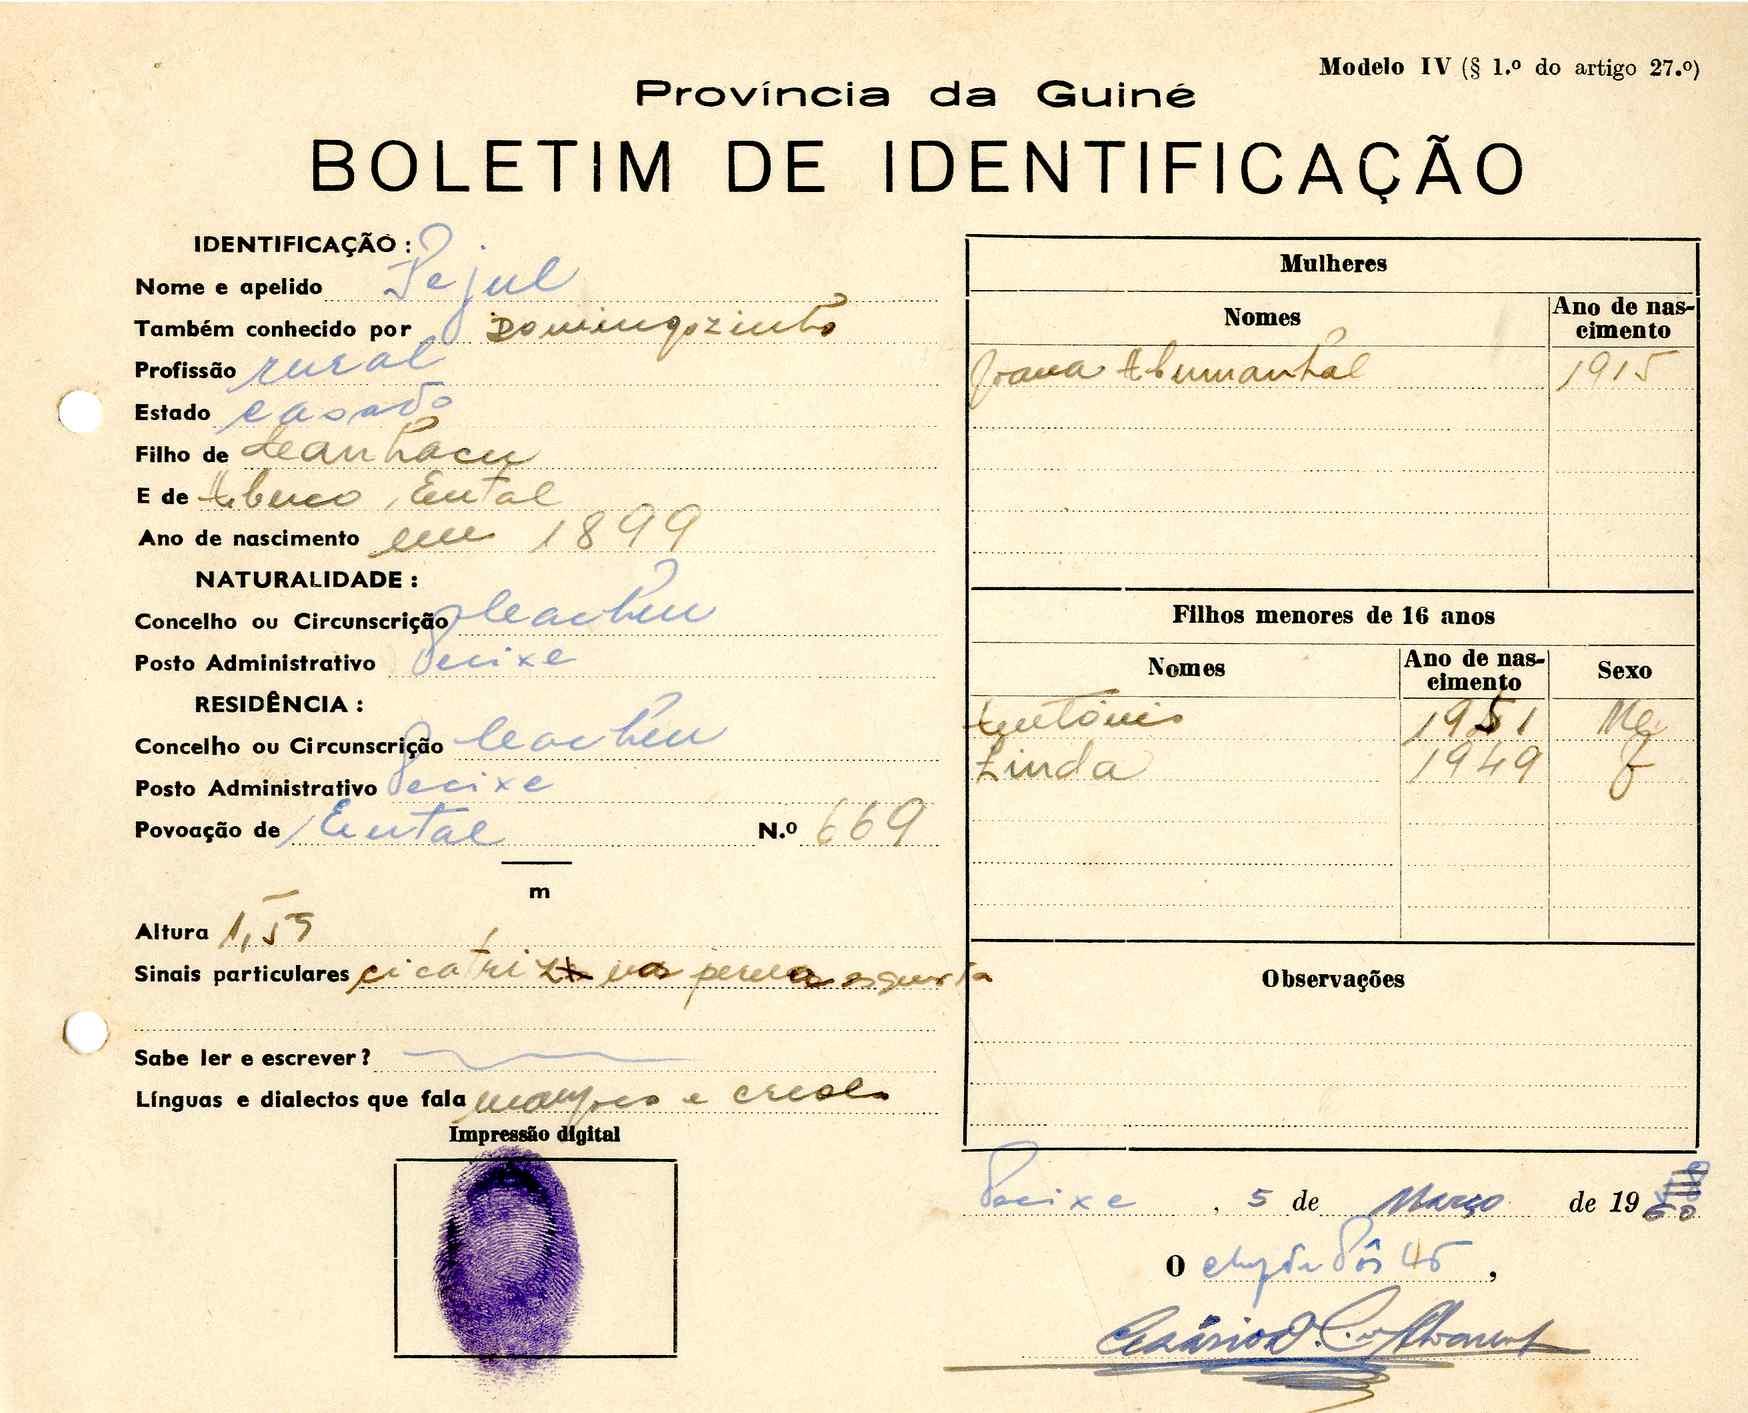 Modelo IV (§ 1.º do artigo 27.º)
Província da Guiné
BOLETIM DE IDENTIFICAÇÃO
IDENTIFICAÇÃO :
Nome e apelido Pejul
Também conhecido por Domingozinho
Profissão rural
Estado casado
Filho de
E de
Ano de nascimento em 1899
NATURALIDADE :
Concelho ou Circunscrição Cacheu
Posto Administrativo Pecixe
RESIDÊNCIA :
Concelho ou Circunscrição Cacheu
Posto Administrativo Pecixe
Povoação de N.º 669
m
Altura 1,55
Sinais particulares cicatriz na perna esquerda
Sabe ler e escrever?
Línguas e dialectos que fala e creolo
Impressão digital
Mulheres
Nomes Ano de nas-
cimento
Joana 1915
Filhos menores de 16 anos
Nomes Ano de nas-
cimento Sexo
António 1951 M
Linda 1949 F
Observações
Pecixe, 5 de Março de 1960
O